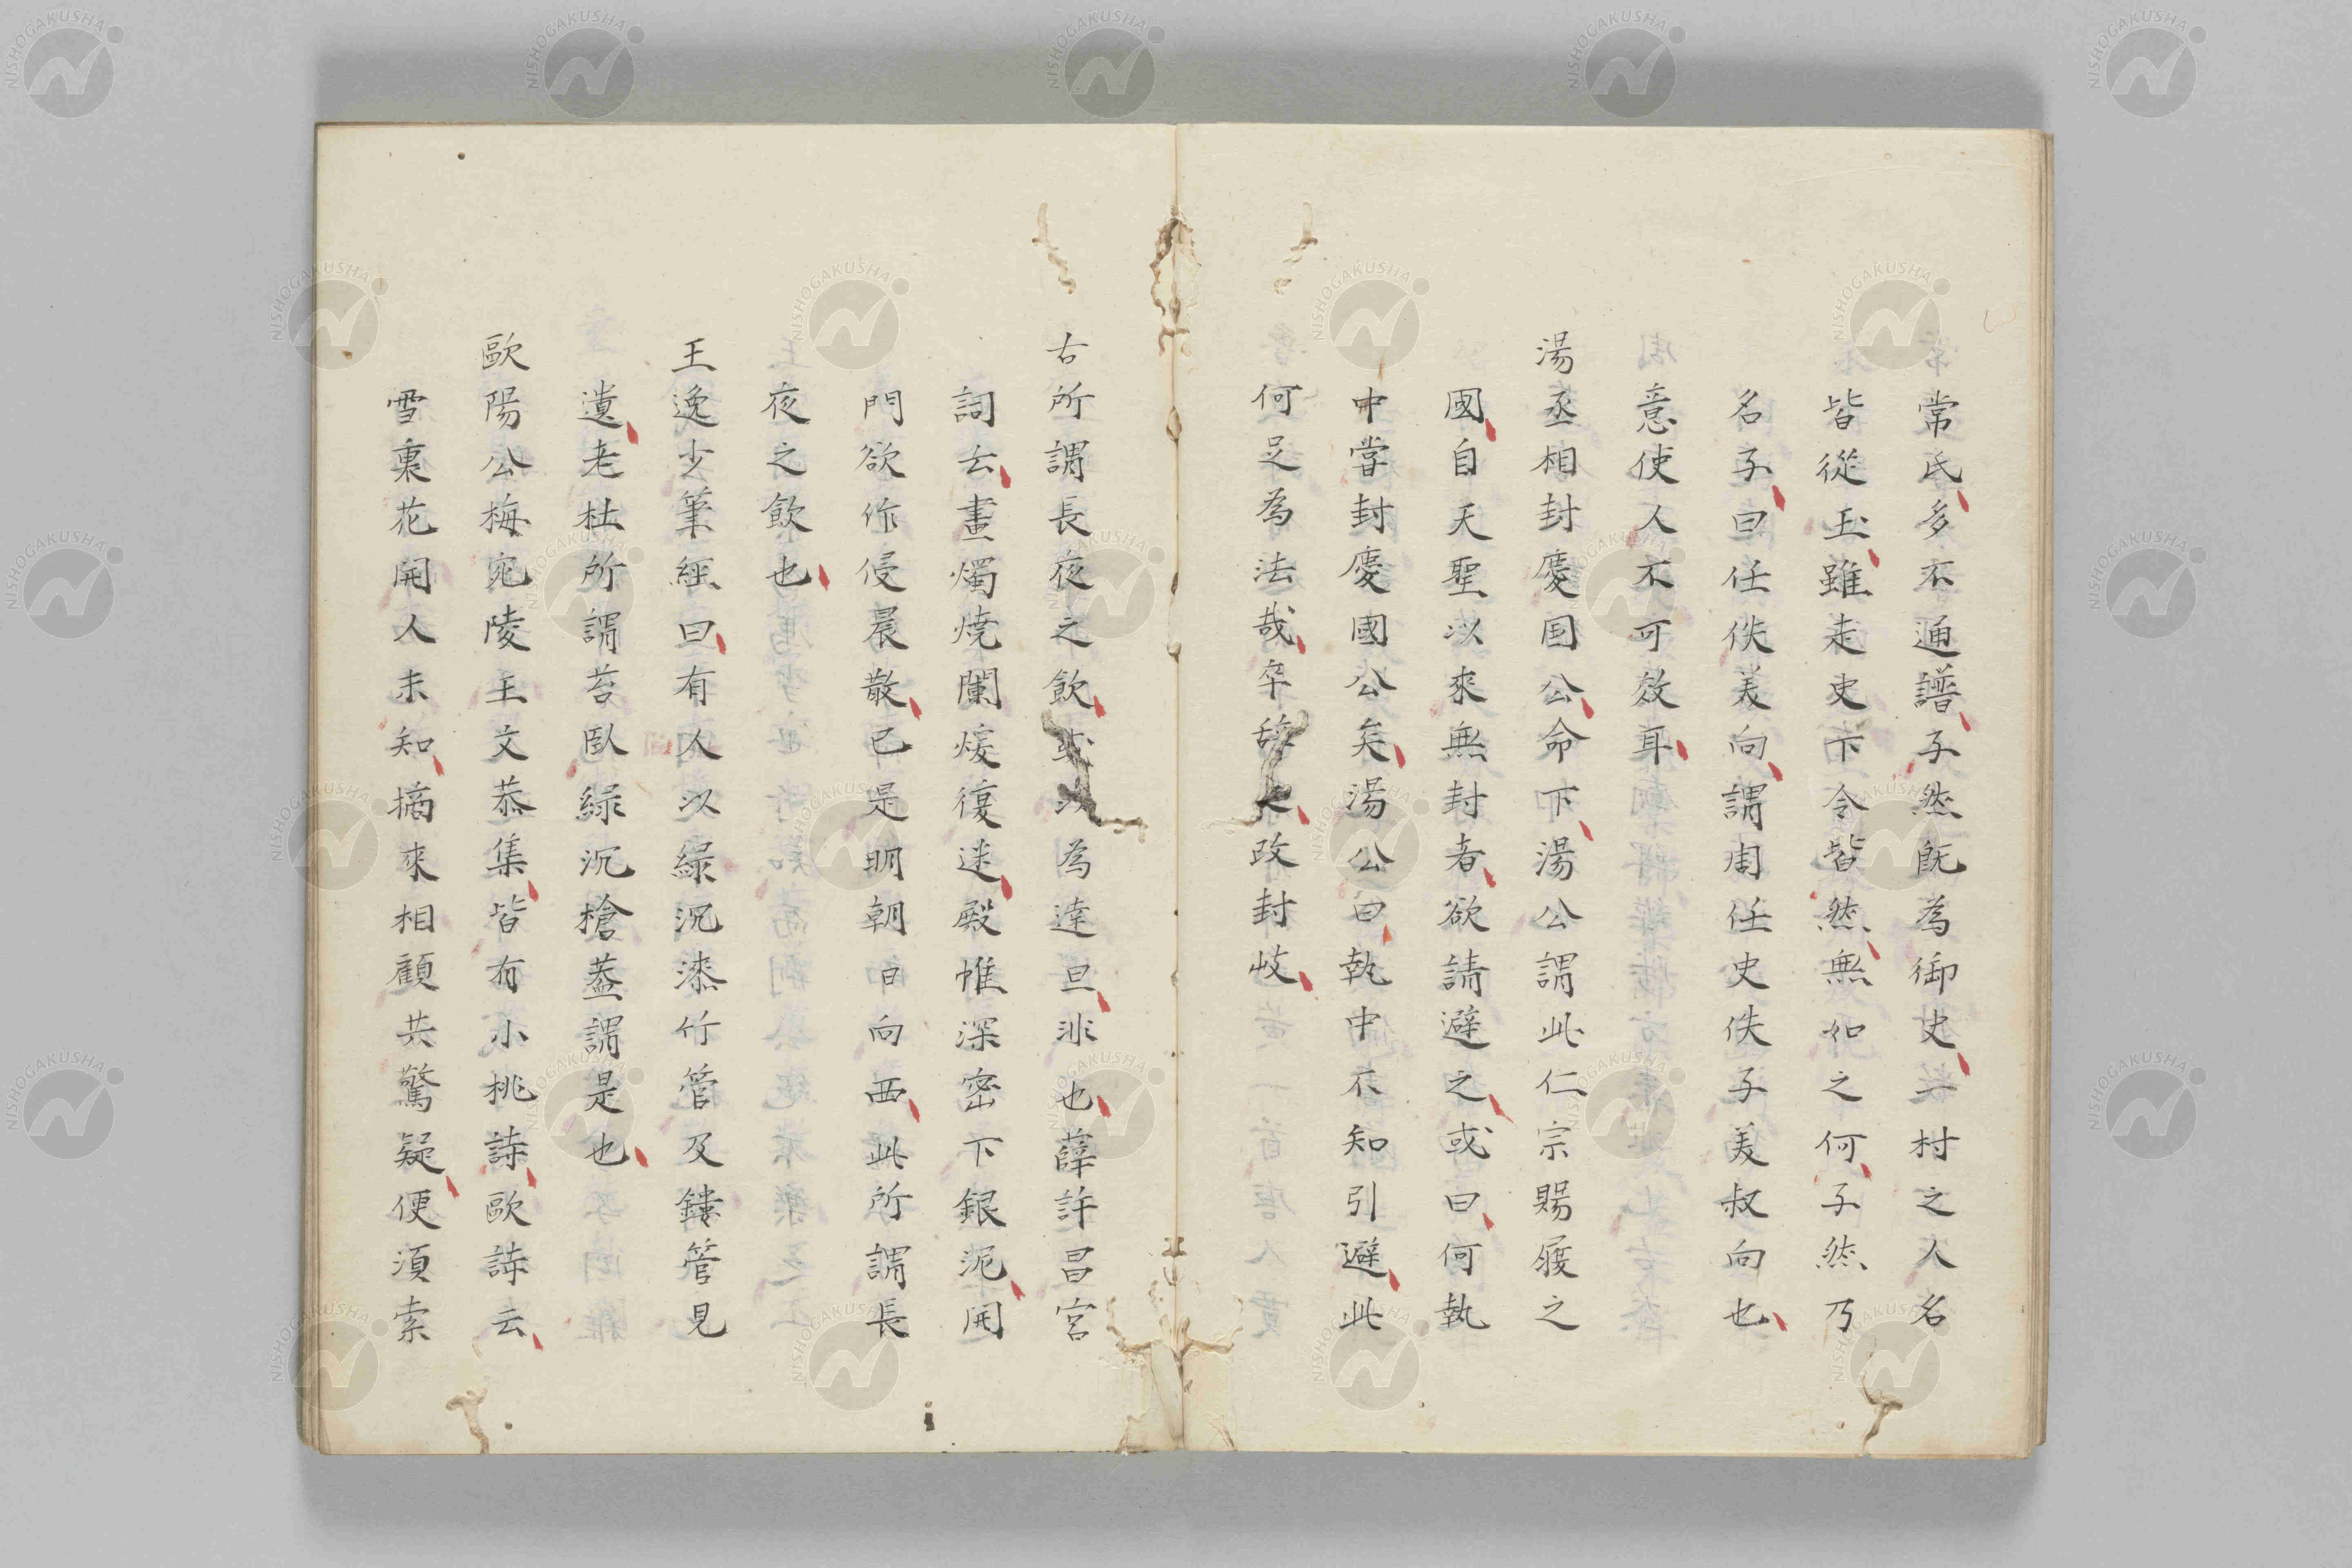 常氏多不通譜子然既為御史挨村之人名
皆從玉雖走吏下令皆然無如之何子然乃
名子曰任佚美向謂周任史佚子美叔向也
意使人不可效耳
湯丞相封慶国公命下湯公謂此仁宗賜履之
國自天聖以來無封者欲請避之或曰何執
中嘗封慶國公矣湯公曰執中不知引避此
何足為法哉卒辞之改封岐
古所謂長夜之飲或以為達旦非也薛許昌宮
詞云畫燭燒闌煖復迷殿帷深密下銀泥開
門欲作侵晨散已是明朝日向西此所謂長
夜之飲也
王逸少筆經曰有人以綠沉漆竹管及鏤管見
遺老杜所謂苔臥綠沉槍蓋謂是也
歐陽公梅宛陵王文恭集皆有小桃詩歐詩云
雪裏花開人未知摘來相顧共驚疑便須索
NISHOGAKUSHA